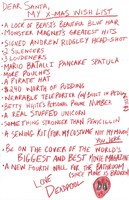 DEAR SANTA,
MY X-MAS WISH LIST
• A LOCK OF BEAST'S BEAUTIFUL BLUE HAIR
• MONSTER MAGNET'S GREATEST HITS
• SIGNED ANDREW RIDGELEY HEAD-SHOT
• 2 SILENCERS
• 3 LOUDENERS
• MARIO BATALLI PANCAKE SPATULA
• MORE POUCHES
• A PIRATE HAT
• $240 WORTH OF PUDDING
• A WEARABLE TELEPORTER
• BETTY WHITE'S PERSONAL PHONE NUMBER
• A REAL STUFFED UNICORN
• SOME THING STRONGER THAN PENICILLIN
• A SEWING KIT (FOR MY COSTUME NOT MY MOUTH
YOU JERK)
• BE ON THE COVER OF THE WORLD'S
BIGGEST AND BEST MOVIE MAGAZINE
• A NEW FOURTH WALL FOR THE BATHROOM
(ONLY MINE'S BROKEN)
LOVE
DEADPOOL